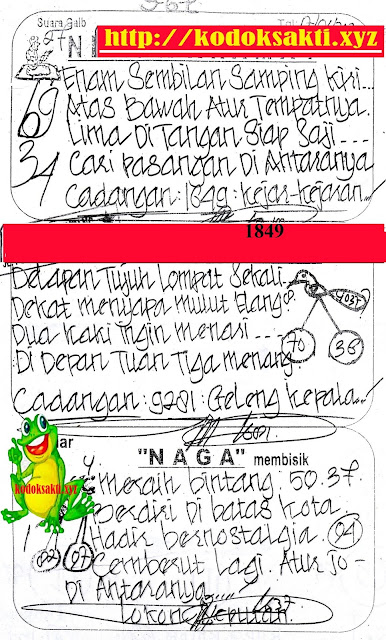 Suara Galb
http://kodoksakti.xyz
N
Enam Sembilan Samping Kiri...
Atas Bawah Atur Tempatnya.
69
Lima Di Tangan Siap Saji ---
34
Cari Pasangan Di Antaranya
Cadangan: 1849: Kejar-kejaran..
1849
Delapan Tujuh Lompat Sekali..
Dekat menyapa mulut Elang
Dua kaki ingin menari ---
70
38
Di Depan Tuan Tiga menang
Cadangan: 9281: Geleng Kepala..
ar
"NAGA" membisik
kodoksakti.xyz
meraih bintang. 50.37.
Berdiri Di batas kota.
Hadir bernostalgia.
04
07
Cemberut Lagi. Atur Jo-
Di Antaranya....